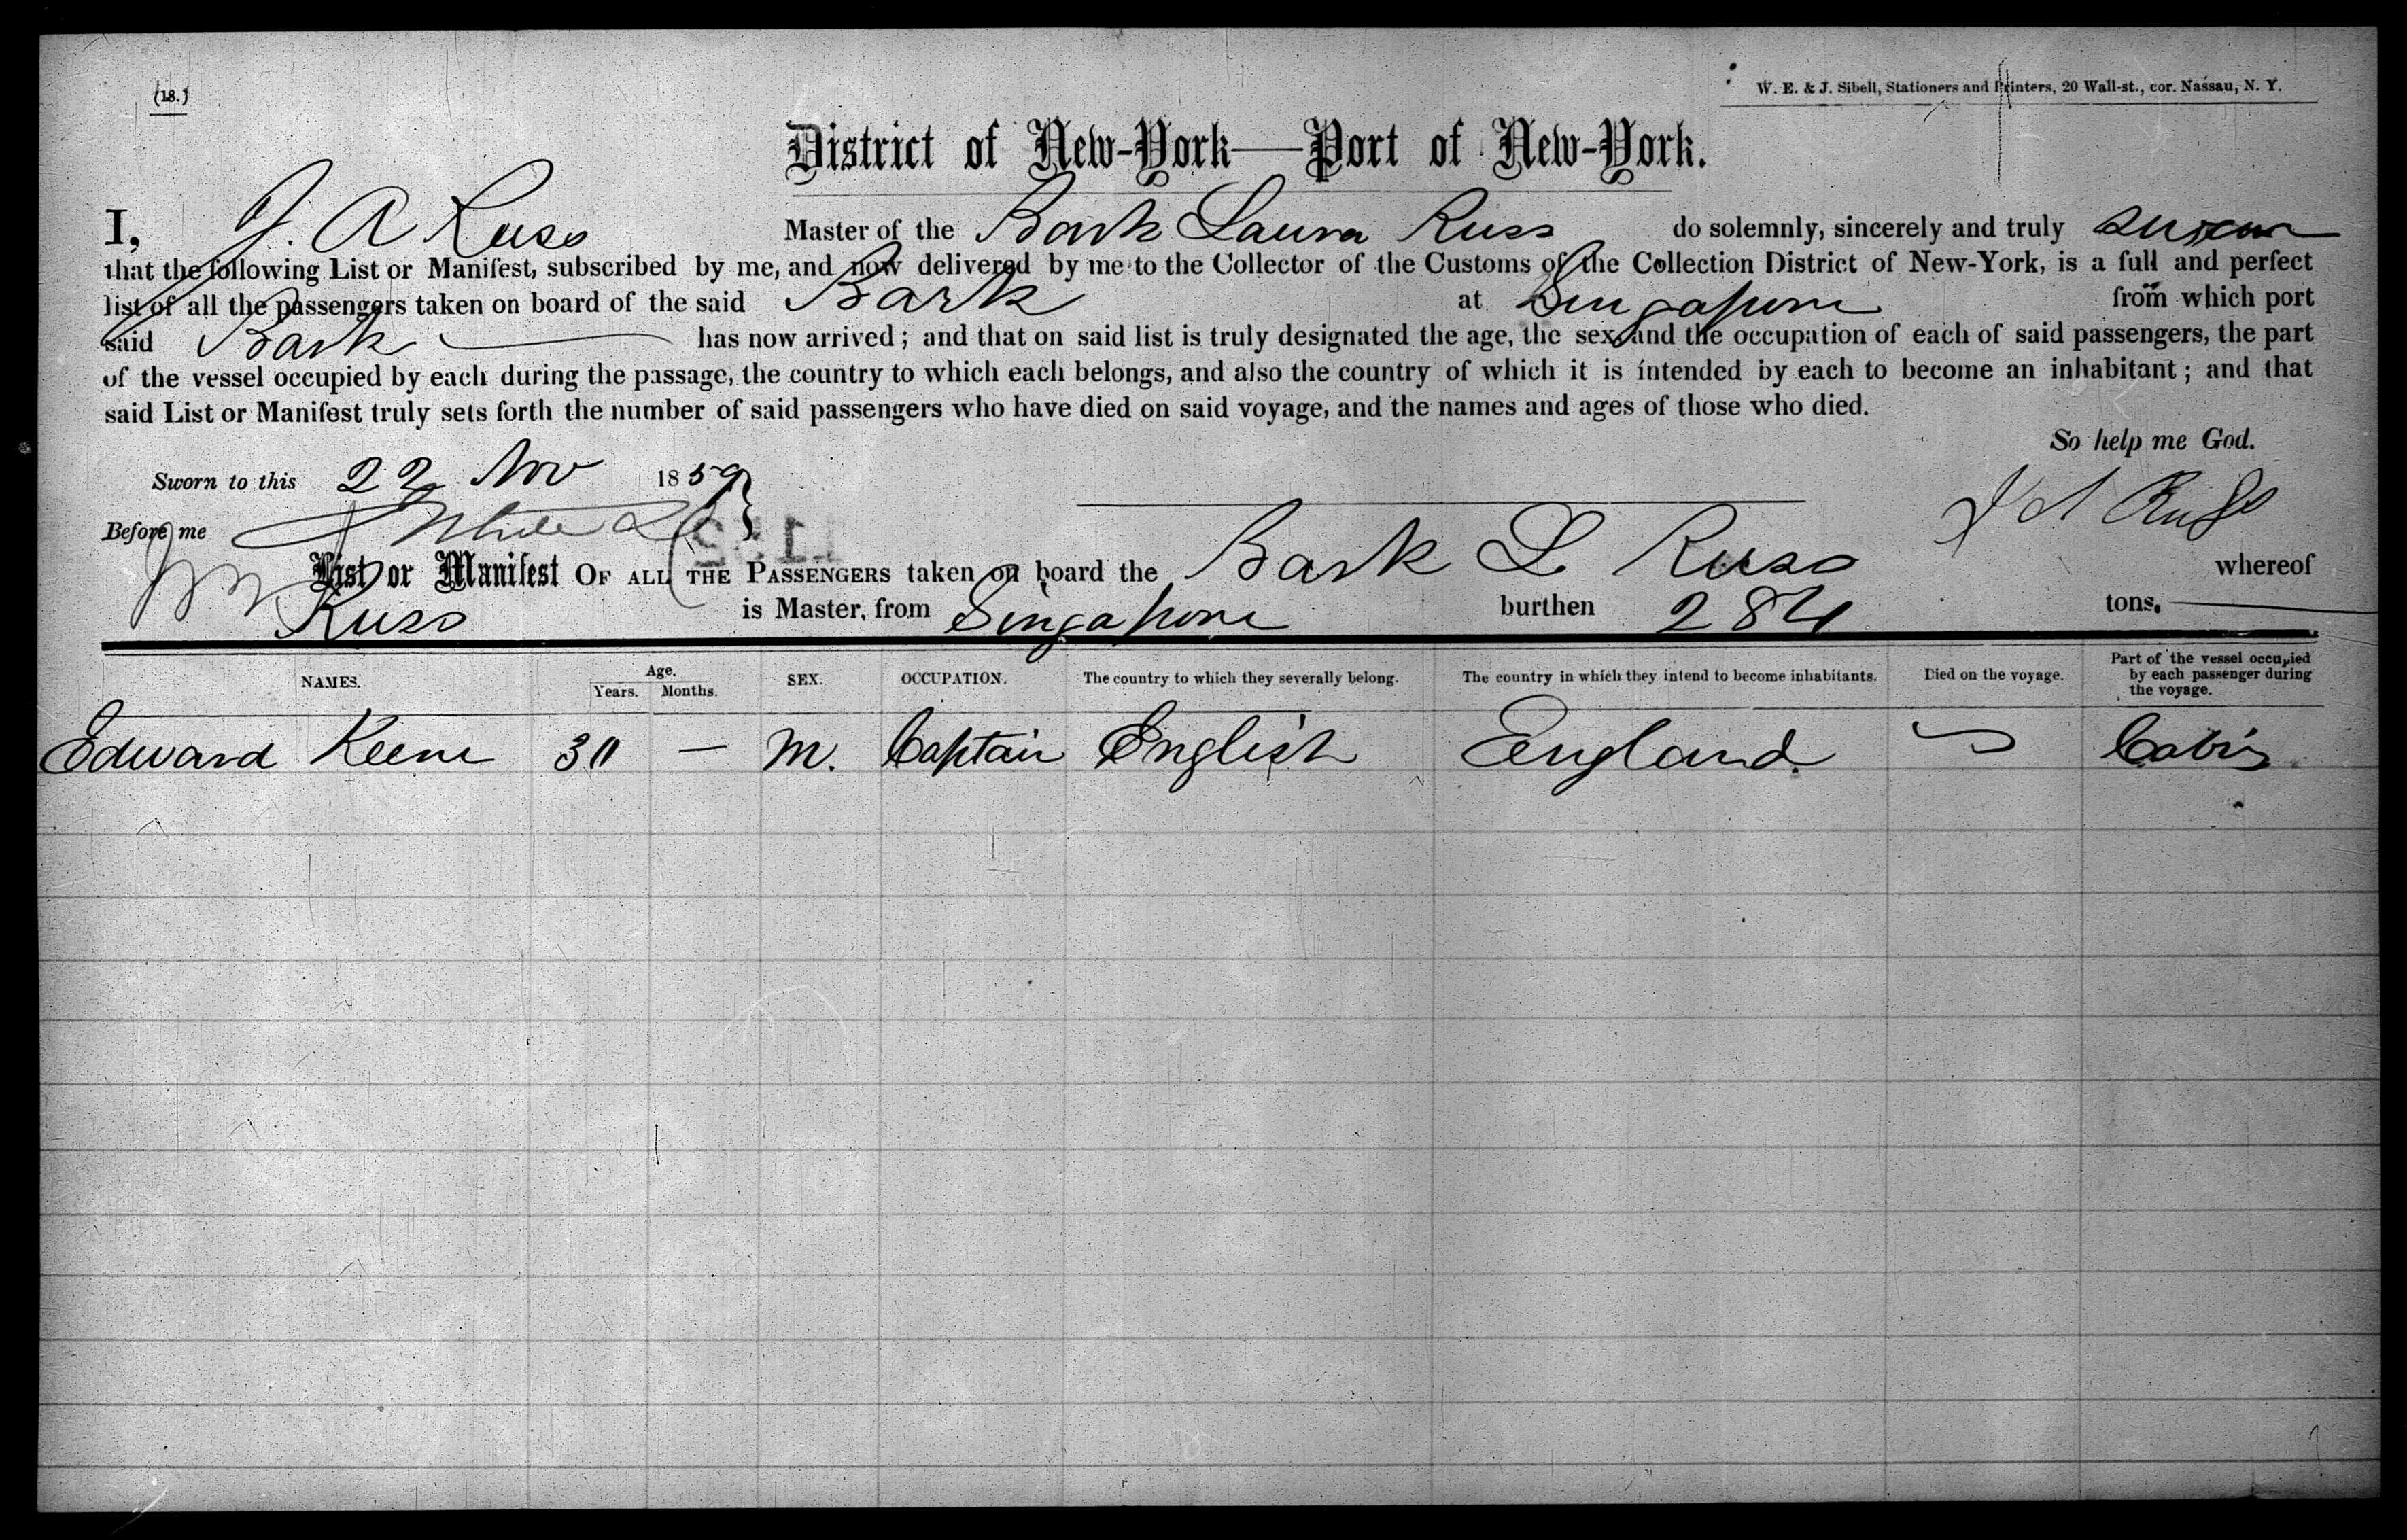 (18.)
W. E. & J. Sibell, Stationers and Printers, 20 Wall-st., cor. Nassau, N. Y.
District of New-York—Port of New-York.
I, J. A Russ Master of the Bark Laura Russ do solemnly, sincerely and truly swear
that the following List or Manifest, subscribed by me, and now delivered by me to the Collector of the Customs of the Collection District of New-York, is a full and perfect
list of all the passengers taken on board of the said Bark at Singapore from which port
said Bark has now arrived; and that on said list is truly designated the age, the sex and the occupation of each of said passengers, the part
of the vessel occupied by each during the passage, the country to which each belongs, and also the country of which it is intended by each to become an inhabitant; and that
said List or Manifest truly sets forth the number of said passengers who have died on said voyage, and the names and ages of those who died.
So help me God.
Sworn to this 22 Nov 1859
J A Russ
Before me
List or Manifest OF ALL THE PASSENGERS taken on board the Bark L Russ whereof
Russ is Master, from Singapore burthen 284 tons.
NAMES. Age. Years. Months. SEX. OCCUPATION. The country to which they severally belong. The country in which they intend to become inhabitants. Died on the voyage. Part of the vessel occupied by each passenger during the voyage.
Edward Keene 30 — M. Captain English England Cabin